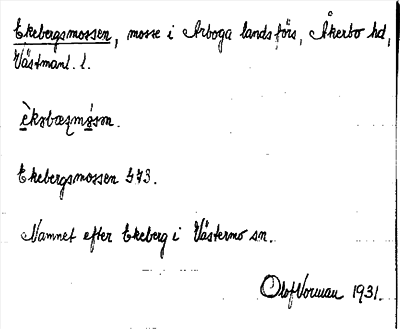 Ekebergsmossen, mosse i Arboga landsförs, Åkerbo hd,
Västmanl. l.
Ekebergsmossen 573.
Namnet efter Ekeberg i Västermo sn.
Olof Vorman 1931.